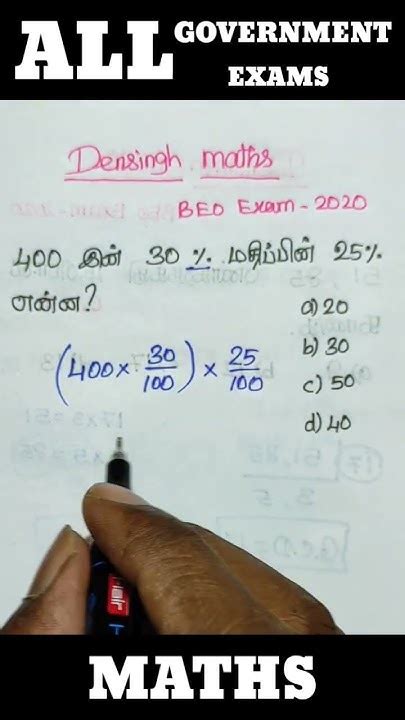 ALL GOVERNMENT
EXAMS
Densingh maths
BEO Exam - 2020
400 இன் 30 % மதிப்பின் 25%
என்ன?
a) 20
b) 30
c) 50
d) 40
(400 × 30/100) × 25/100
MATHS